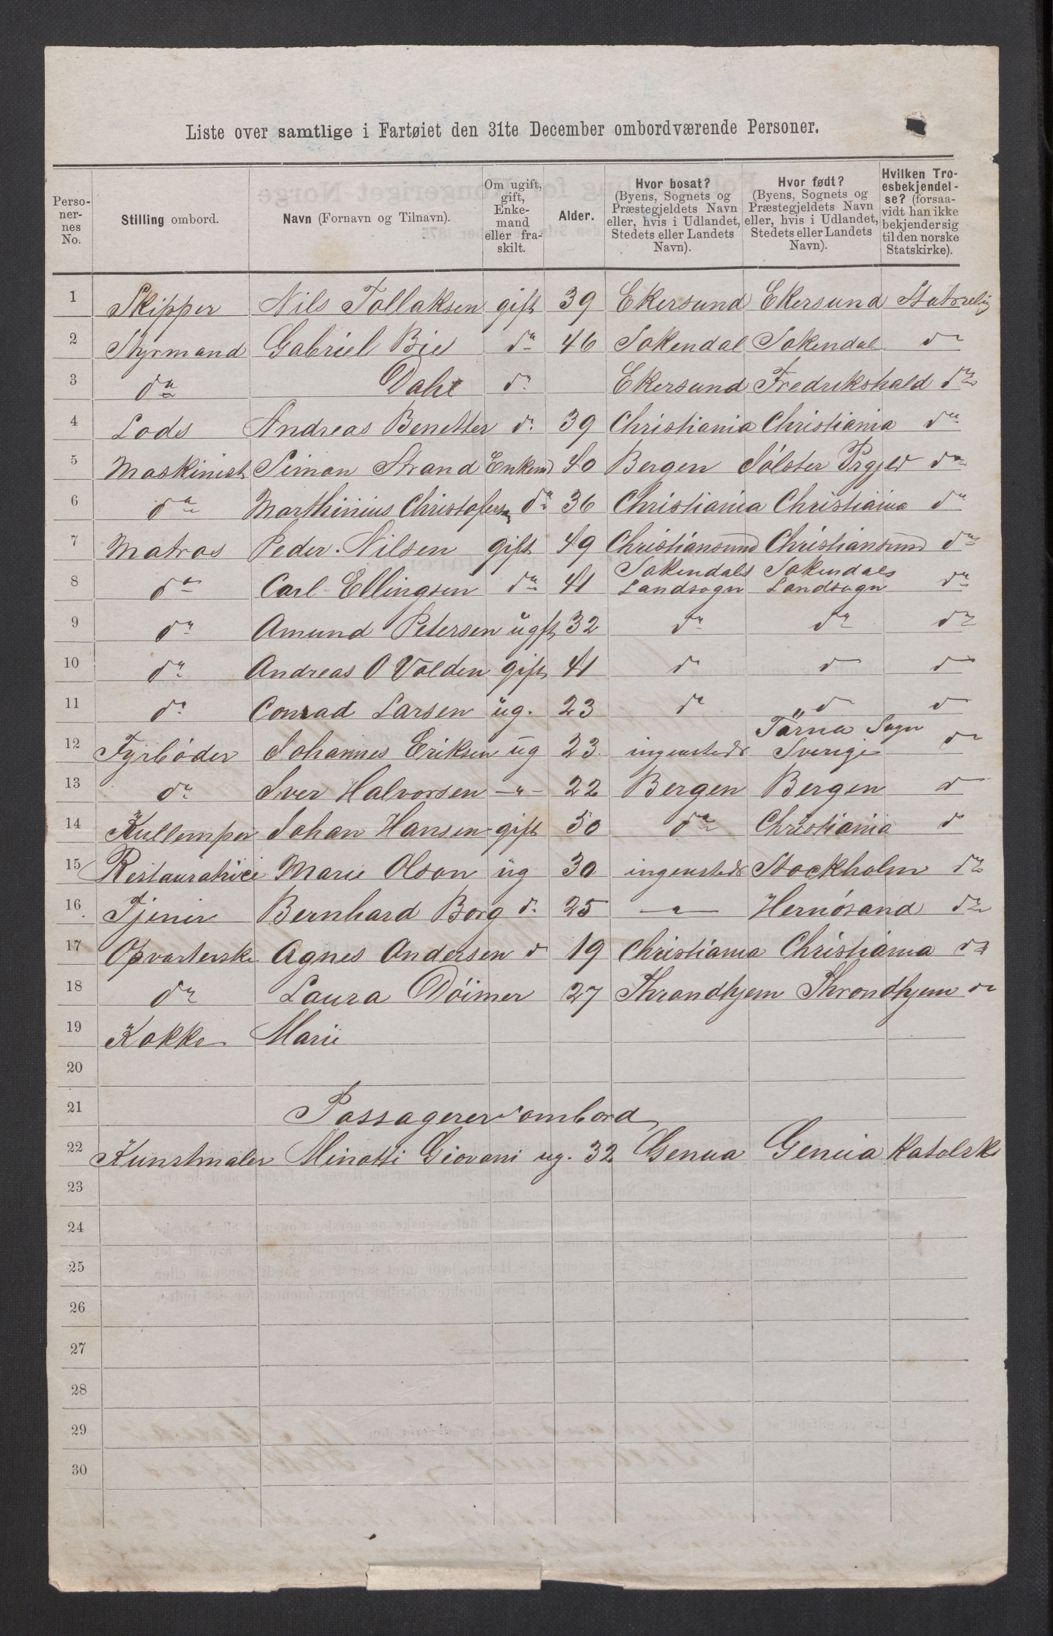 Liste over samtlige i Fartøiet den 31te December ombordværende Personer.
Perso-nernes No. | Stilling ombord. | Navn (Fornavn og Tilnavn). | Om ugift, gift, Enkemand eller fraskilt. | Alder. | Hvor bosat? (Byens, Sognets og Præstegjeldets Navn eller, hvis i Udlandet, Stedets eller Landets Navn). | Hvor født? (Byens, Sognets og Præstegjeldets Navn eller, hvis i Udlandet, Stedets eller Landets Navn). | Hvilken Troesbekjendelse? (forsaavidt han ikke bekjender sig til den norske Statskirke).
1 Skipper Nils Tollaksen gift 39 Ekersund Ekersund
2 Styrmand Gabriel Bie do 46 Sokendal Sokendal do
3 do Dahl do Ekersund Fredrikshald do
4 Lods Andreas Benetter do 39 Christiania Christiania do
5 Maskinist Simon Strand Enkem 40 Bergen Sølster Prgjeld do
6 do Marthinius Christofersen do 36 Christiania Christiania do
7 Matros Peder Nilsen gift 49 Christiansund Christiansund do
8 do Carl Ellingsen do 41 Sokendals Landsogn Sokendals Landsogn do
9 do Amund Petersen ugft 32 do do do
10 do Andreas O Volden gift 41 do do do
11 do Conrad Larsen ug. 23 do " do do
12 Fyrbøder Johannes Eriksen ug 23 ingensteds Tärna Sogn Sverige do
13 do Iver Halvorsen -"- 22 Bergen Bergen do
14 Kullemper Johan Hansen gift 50 do Christiania do
15 Restauratrice Marie Olson ug 30 ingensteds Stockholm do
16 Tjener Bernhard Borg do 25 -"- Hernösand do
17 Opvarterske Agnes Andersen do 19 Christiania Christiania do
18 do Laura Döimer 27 Throndhjem Throndhjem do
19 Kokke Marie
20
21 Passagerer ombord
22 Kunstmaler Minotti Giovani ug. 32 Genua Genua Katolsk
23
24
25
26
27
28
29
30